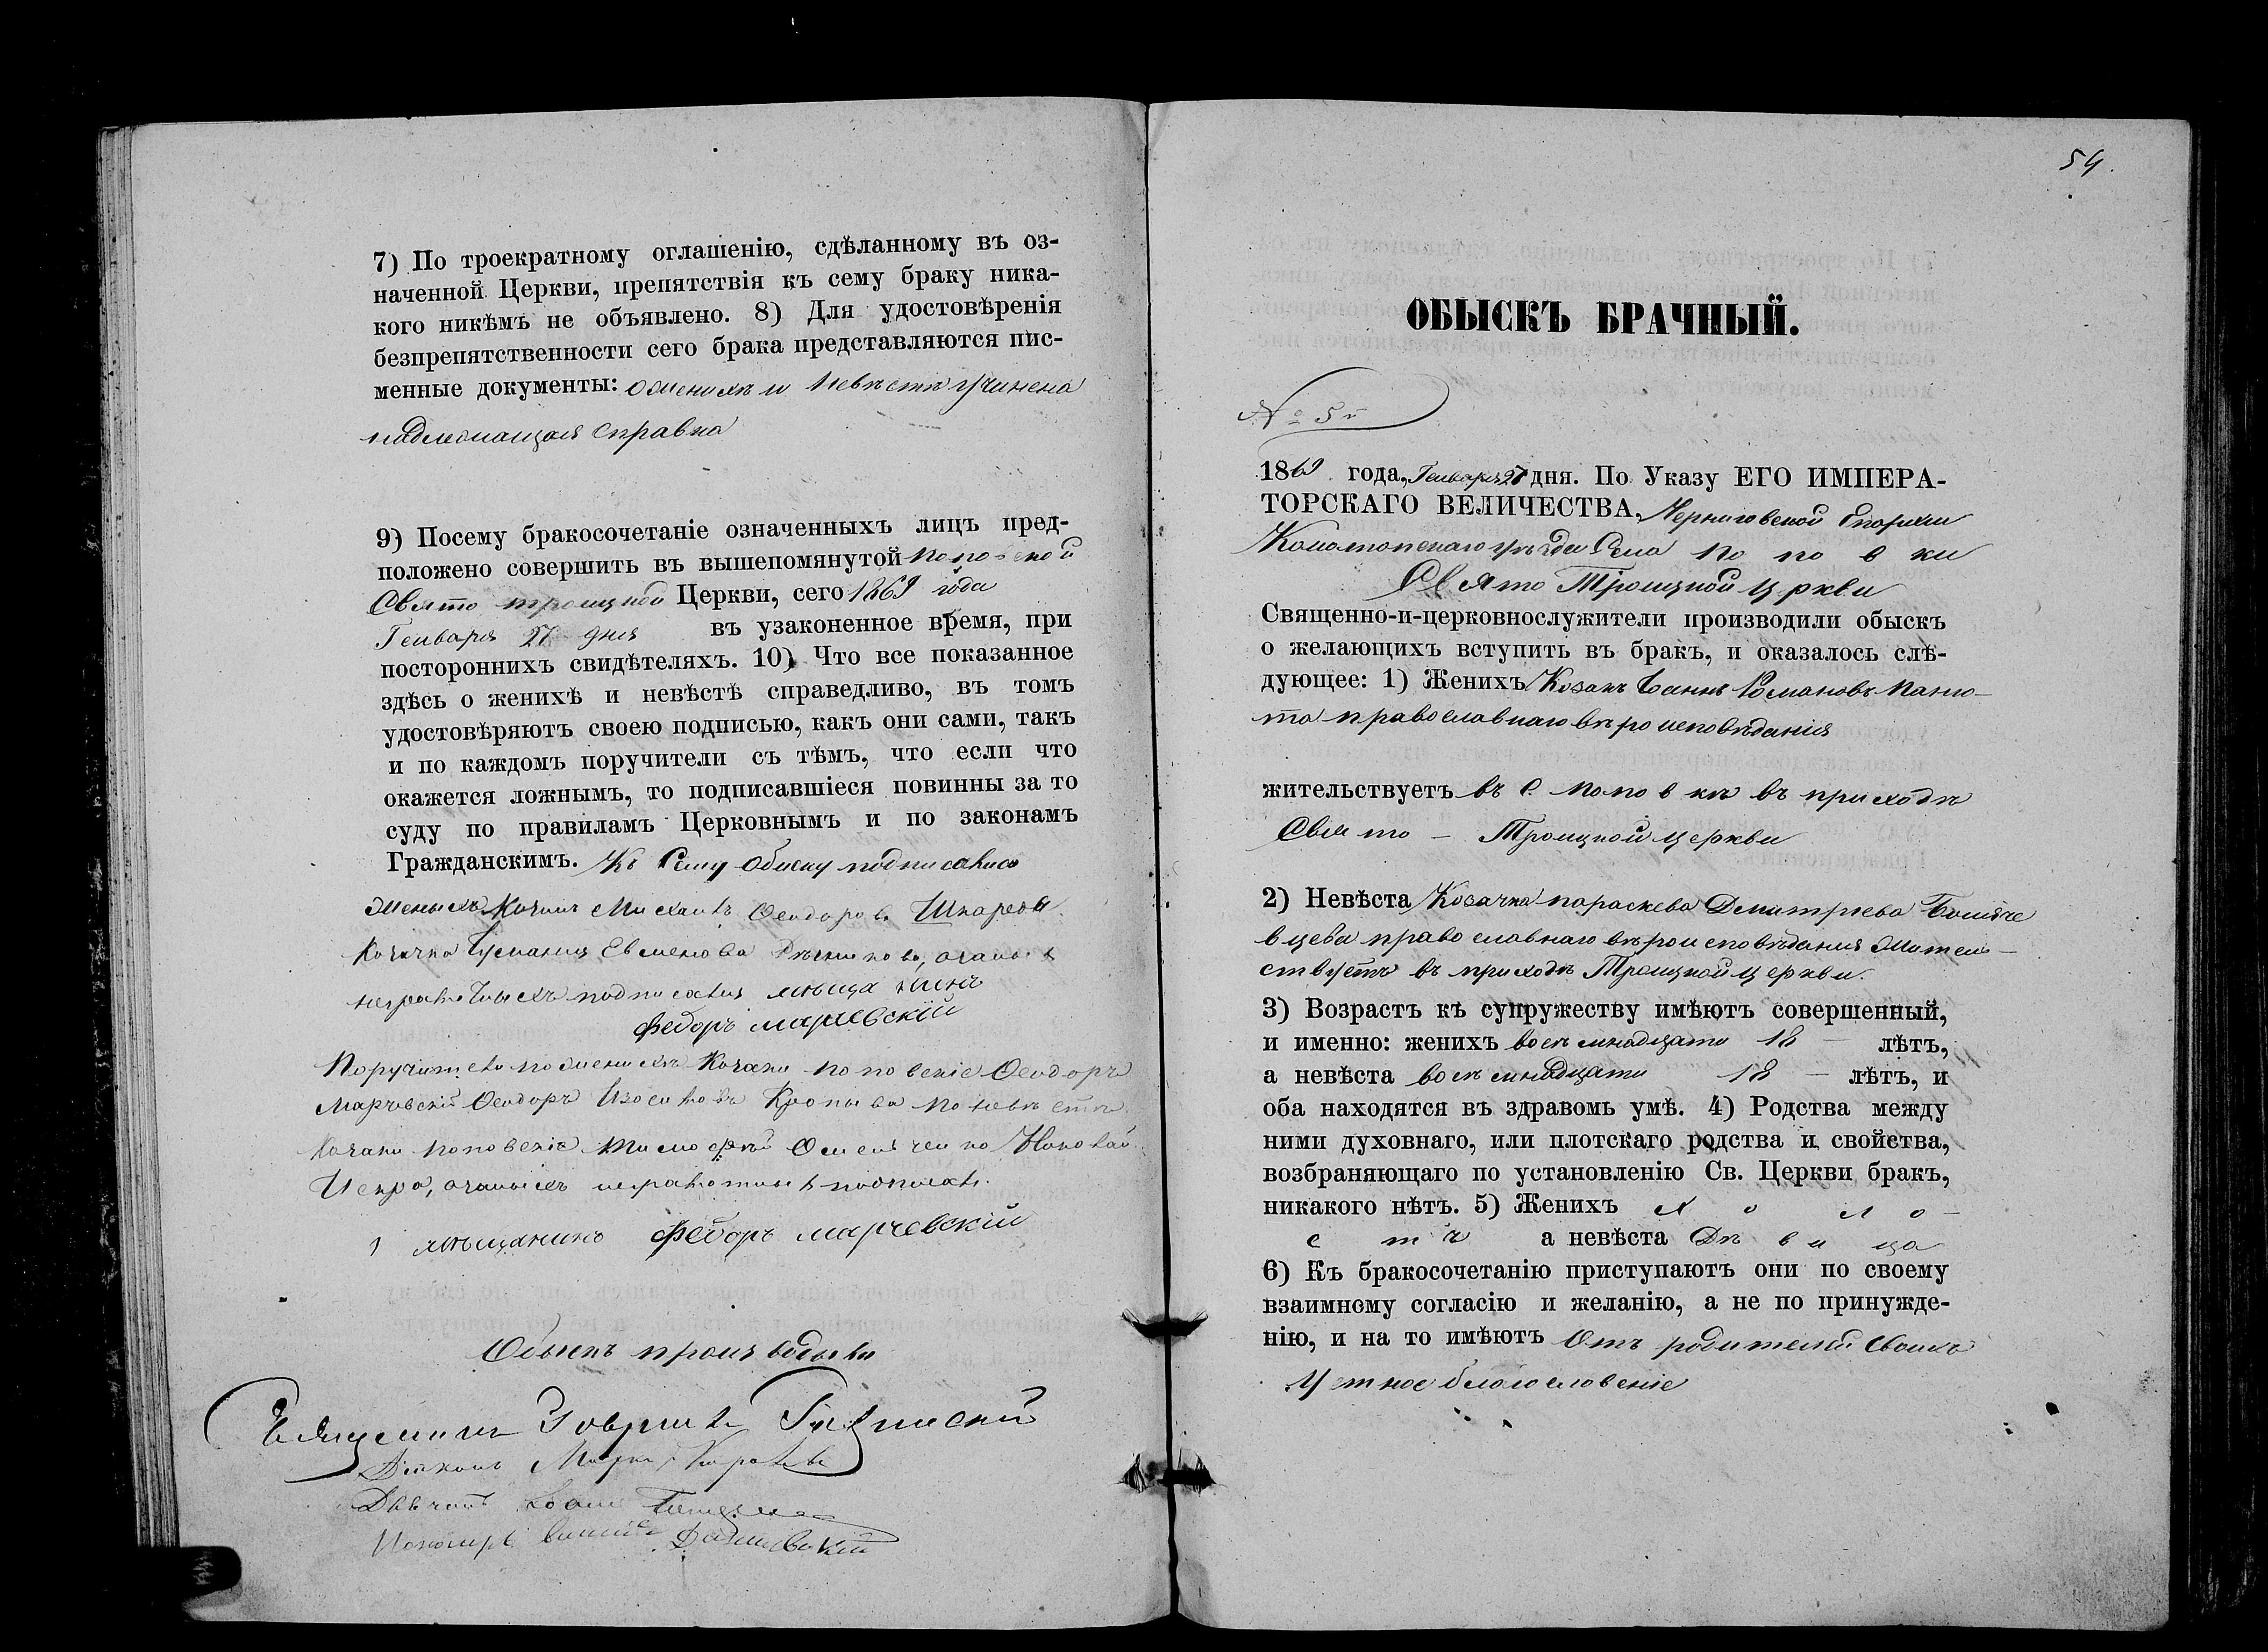 7) По троекратному оглашенію, сдѣланному въ оз-
наченной Церкви, препятствія къ сему браку ника-
кого никѣмъ не объявлено. 8) Для удостовѣренія
безпрепятственности сего брака представляются пис-
менные документы: о женихѣ и невѣстѣ учинена
надлежащая справка
9) Посему бракосочетаніе означенныхъ лицъ пред-
положено совершить въ вышепомянутой поповской
Свято троицкой Церкви, сего 1869 года
Генваря 27 дня въ узаконенное время, при
постороннихъ свидѣтеляхъ. 10) Что все показанное
здѣсь о женихѣ и невѣстѣ справедливо, въ томъ
удостовѣряютъ своею подписью, какъ они сами, такъ
и по каждомъ поручители съ тѣмъ, что если что
окажется ложнымъ, то подписавшіеся повинны за то
суду по правиламъ Церковнымъ и по законамъ
Гражданскимъ. Къ Сему обыску подписались
Женихъ Козакъ Михаилъ Феодоровъ
Козачка Евменова
неграмотныхъ подписался
Федоръ марчевскій
Поручители по женихѣ Козаки поповскіе Феодоръ
Марчевскій Феодоръ Кропива по невѣстѣ
Козаки поповскіе Тимофей Николай
Искра, неграмотныхъ подписалъ
мѣщанинъ Федоръ марчевскій
Обыскъ производили
Священникъ Гавріилъ
Діаконъ
Дьячекъ
Пономарь
54.
ОБЫСКЪ БРАЧНЫЙ.
№ 5й
1869 года, Генваря 27 дня. По Указу ЕГО ИМПЕРА-
ТОРСКАГО ВЕЛИЧЕСТВА, Черниговской Епархіи
Конотопскаго уѣзда Села Поповки
Свято Троицкой Церкви
Священно-и-церковнослужители производили обыскъ
о желающихъ вступить въ бракъ, и оказалось слѣ-
дующее: 1) Женихъ Козакъ Іоаннъ Романовъ Паню-
та православнаго вѣроисповѣданія
жительствуетъ въ С. Поповкѣ въ приходѣ
Свято - Троицкой церкви
2) Невѣста Козачка параскева Димитріева
православнаго вѣроисповѣданія Жител-
ствуетъ въ приходѣ Троицкой церкви.
3) Возрастъ къ супружеству имѣютъ совершенный,
и именно: женихъ восемнадцати 18 — лѣтъ,
а невѣста восемнадцати 18 — лѣтъ, и
оба находятся въ здравомъ умѣ. 4) Родства между
ними духовнаго, или плотскаго родства и свойства,
возбраняющаго по установленію Св. Церкви бракъ,
никакого нѣтъ. 5) Женихъ Холо-
стъ а невѣста Дѣвица
6) Къ бракосочетанію приступаютъ они по своему
взаимному согласію и желанію, а не по принужде-
нію, и на то имѣютъ Отъ родителей своихъ
Устное благословеніе